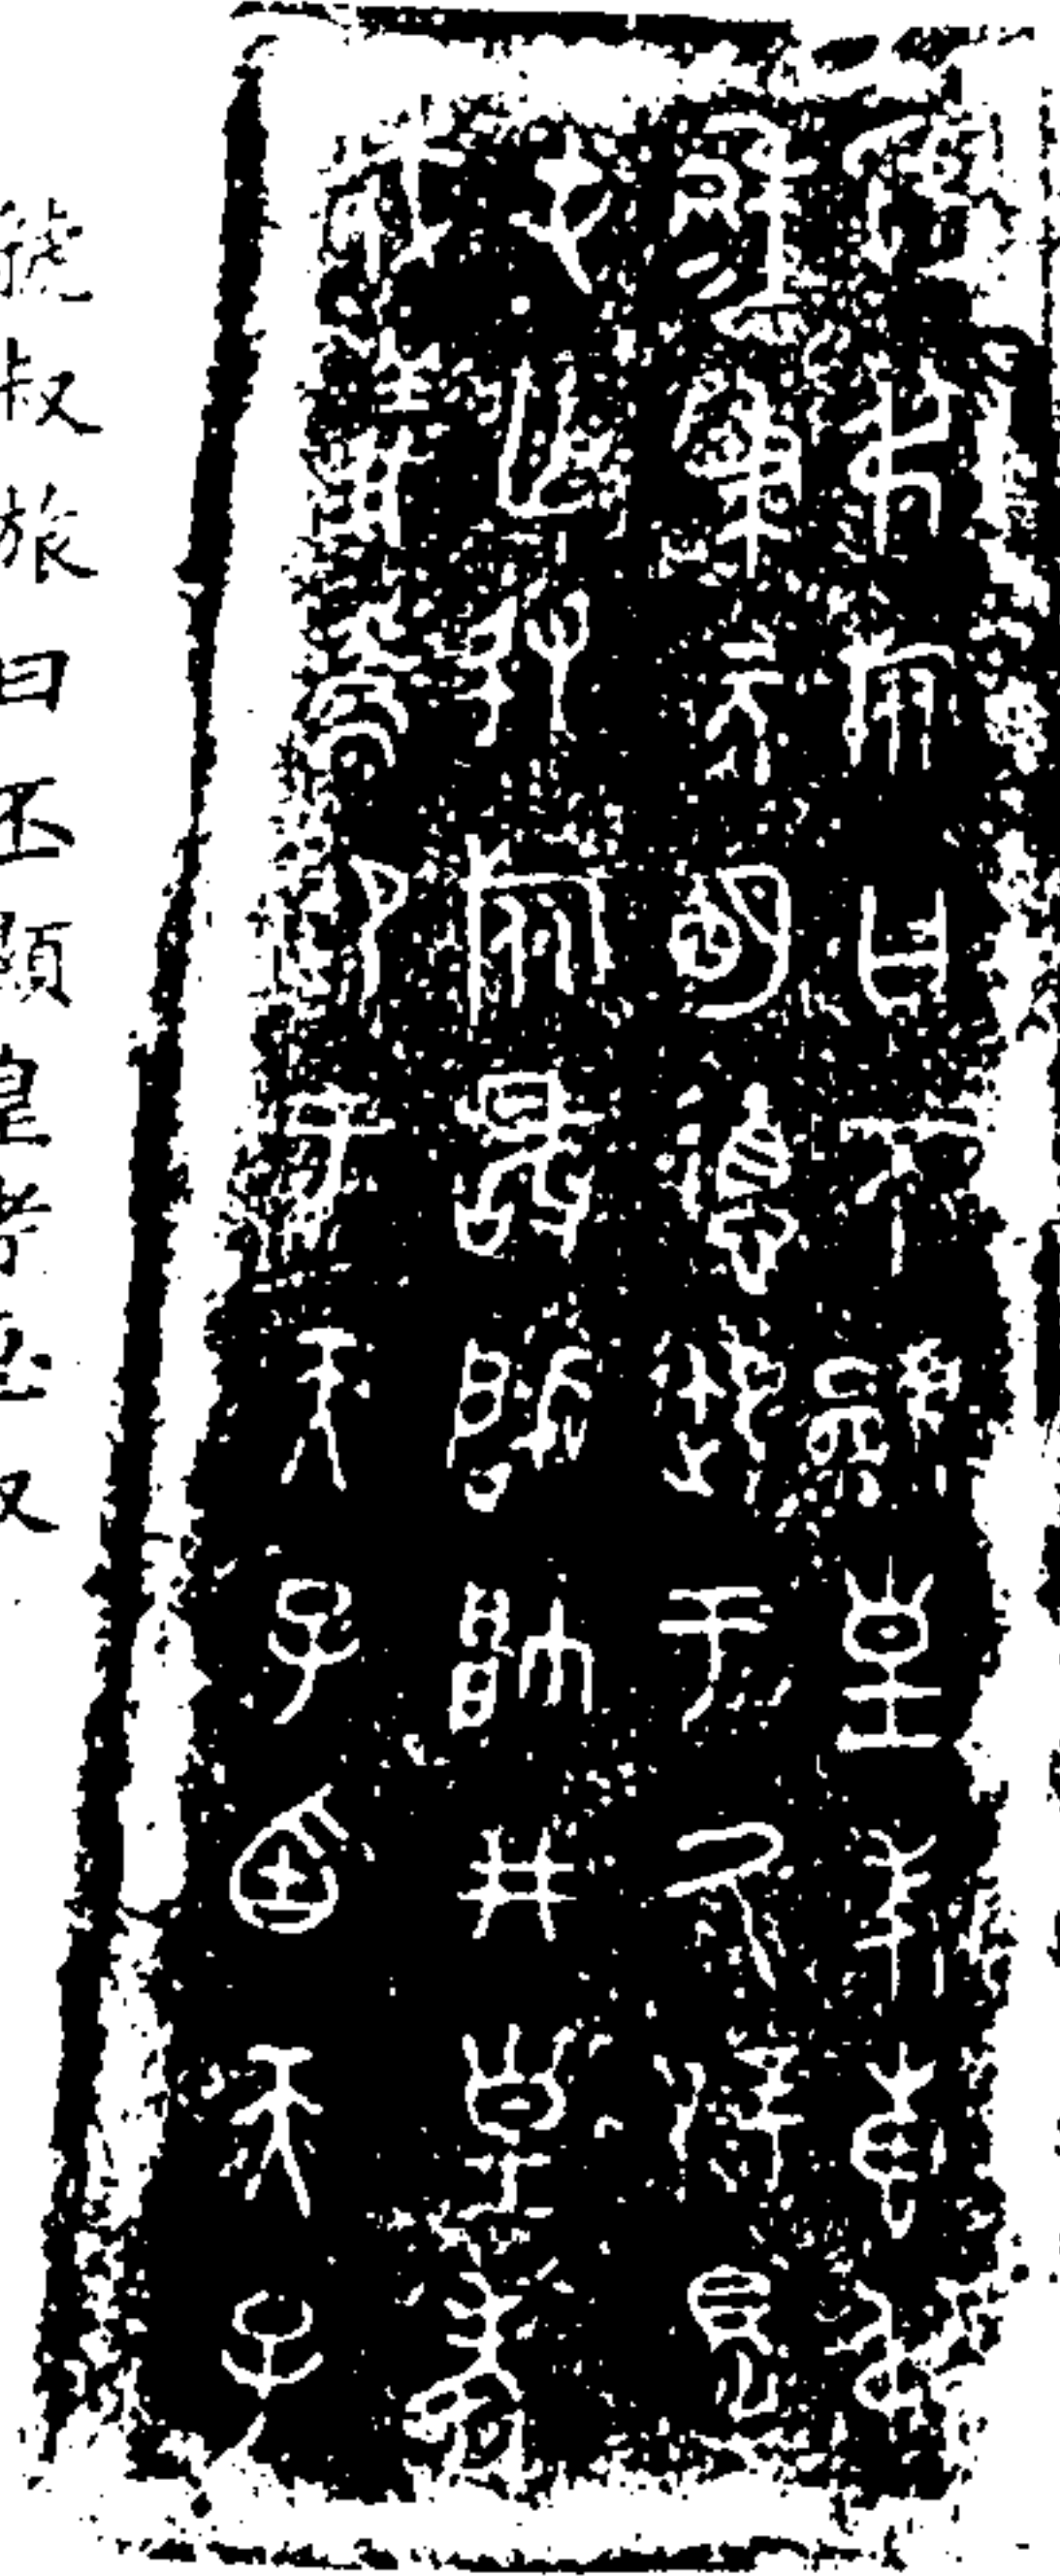 虢叔旅曰不顯皇考叀叔
穆=秉元明德御于氒辟得
屯亡敃旅敢肇帥井皇考
威義御于天子迺天子
虢叔旅曰丕顯皇考惠叔